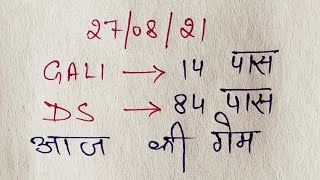 27/08/21
GALI → 14 पास
DS → 84 पास
आज की गेम